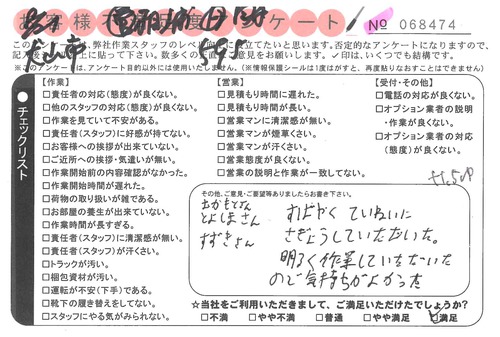 お客様 ケート! No 068474
この 、弊社作業スタッフのレベル 立てたいと思います。否定的なアンケートになりますので、
記入 上に貼って下さい。数多くの ご意見をお願いします。✓印は、いくつでも結構です。
※このアンケートは、アンケート目的以外には使用いたしません。(※情報保護シールは1度はがすと、再度貼りなおすことはできません)
チェックリスト
【作業】
□責任者の対応(態度)が良くない。
□他のスタッフの対応(態度)が良くない。
□作業を見ていて不安がある。
□責任者(スタッフ)に好感が持てない。
□お客様への挨拶が出来ていない。
□ご近所への挨拶・気遣いが無い。
□作業開始前の内容確認がなかった。
□作業開始時間が遅れた。
□荷物の取り扱いが雑である。
□お部屋の養生が出来ていない。
□作業時間が長すぎる。
□責任者(スタッフ)に清潔感が無い。
□責任者(スタッフ)が汗くさい。
□トラックが汚い。
□梱包資材が汚い。
□運転が不安(下手)である。
□靴下の履き替えをしてない。
□スタッフにやる気がみられない。
【営業】
□見積もり時間に遅れた。
□見積もり時間が長い。
□営業マンに清潔感が無い。
□営業マンが煙草くさい。
□営業マンが汗くさい。
□営業態度が良くない。
□営業の説明と作業が一致してない。
【受付・その他】
□電話の対応が良くない。
□オプション業者の説明
・作業が良くない。
□オプション業者の対応
(態度)が良くない。
その他、ご意見・ご要望等ありましたらお書き下さい。
おかもとさん
とよしまさん
すずきさん
すばやく ていねいに
さぎょうしていただいた。
明るく作業していただいた
ので気持ちがよかった
☆当社をご利用いただきまして、ご満足いただけたでしょうか?
□不満 □やや不満 □普通 □やや満足 ☑満足